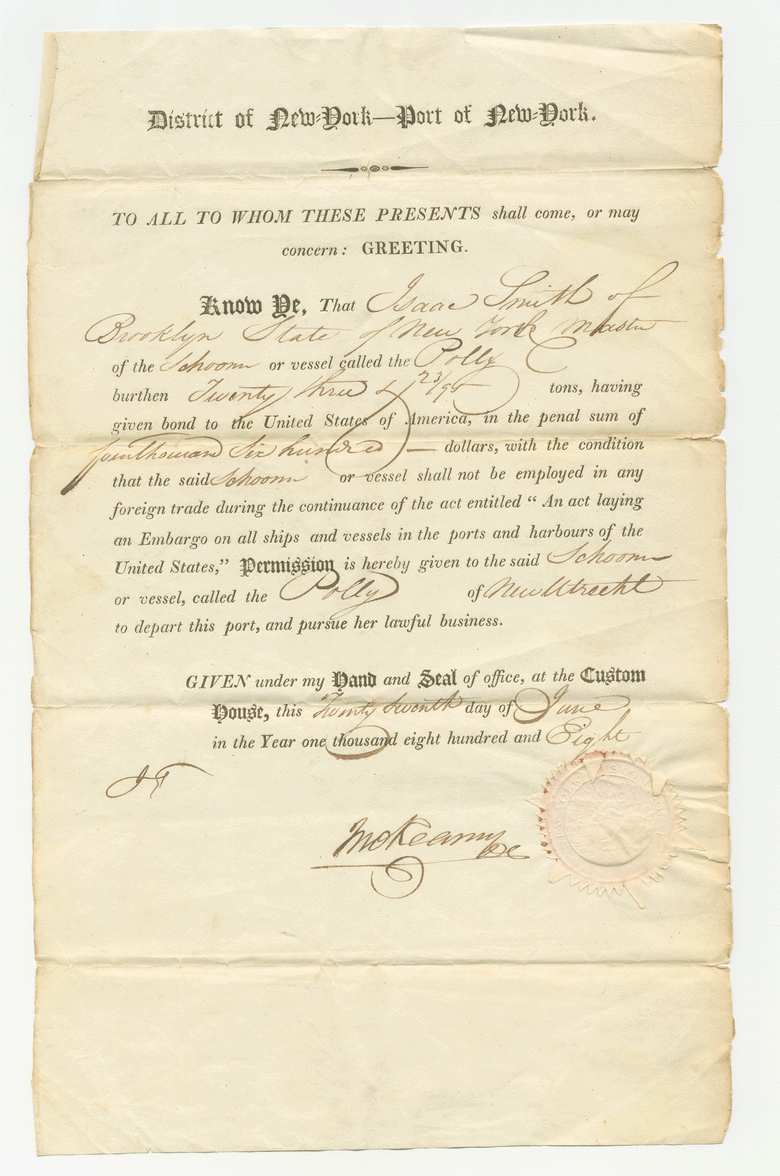 District of New-York—Port of New-York.
TO ALL TO WHOM THESE PRESENTS shall come, or may
concern: GREETING.
Know Ye, That Isaac Smith of
Brooklyn State of New York Master
of the Schooner or vessel called the Polly
burthen Twenty three & 23/95 tons, having
given bond to the United States of America, in the penal sum of
four thousand Six hundred — dollars, with the condition
that the said Schooner or vessel shall not be employed in any
foreign trade during the continuance of the act entitled “ An act laying
an Embargo on all ships and vessels in the ports and harbours of the
United States,” Permission is hereby given to the said Schooner
or vessel, called the Polly of New Utrecht
to depart this port, and pursue her lawful business.
GIVEN under my Hand and Seal of office, at the Custom
House, this Twenty Seventh day of June
in the Year one thousand eight hundred and Eight